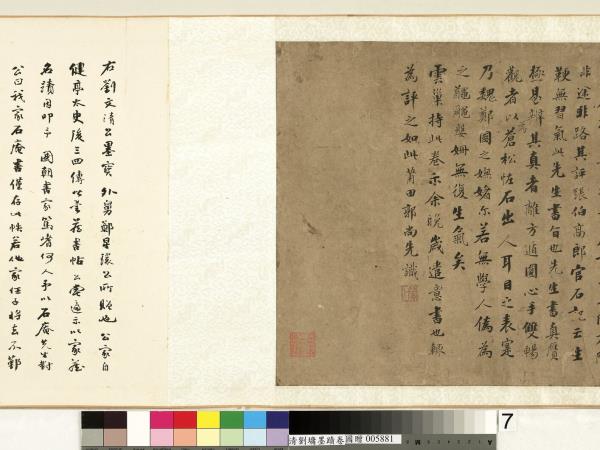 非迹非路其評張伯高郎官石記云生
硬無習氣此先生書旨也先生書真贋
極易辨其真者離方遁圓心手雙暢
觀者以為蒼松怪石出人耳目之表寔
乃魏鄭國之嫵媚尔若無學人偽為
之黽黽𫎇姍無復生氣矣
雲巢持此卷示余晚歲遣意書也輒
為評之如此莆田郭尚先識
右劉文清公墨寶外舅鄭星瓌公所貽也公家自
健亭太史後三四傳皆善藏書帖公嘗遍示以家藏
名蹟因叩予國朝書家篤嗜何人予以石庵先生對
公曰我家石庵書僅存此帙若他家任子將去不靳
清劉墉墨蹟卷
國贈 005881
7